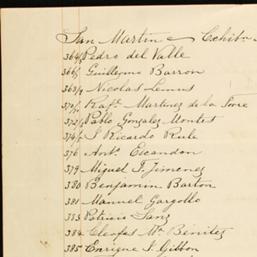 San Martin - Exhib
364/ Pedro del Valle
366/ Guillermo Barron
369/ Nicolas Lemus
370/1 Rafl. Martinez de la Torre
372/3 Pablo Gonzalez Montes
374/5 J Ricardo Rule
376 Anto. Escandon
379 Miguel F. Jimenez
380 Benjamin Barton
381 Manuel Gargollo
383 Patricio Sanz
384 Cleofas Ma. Benitez
385 Enrique J. Gibbon